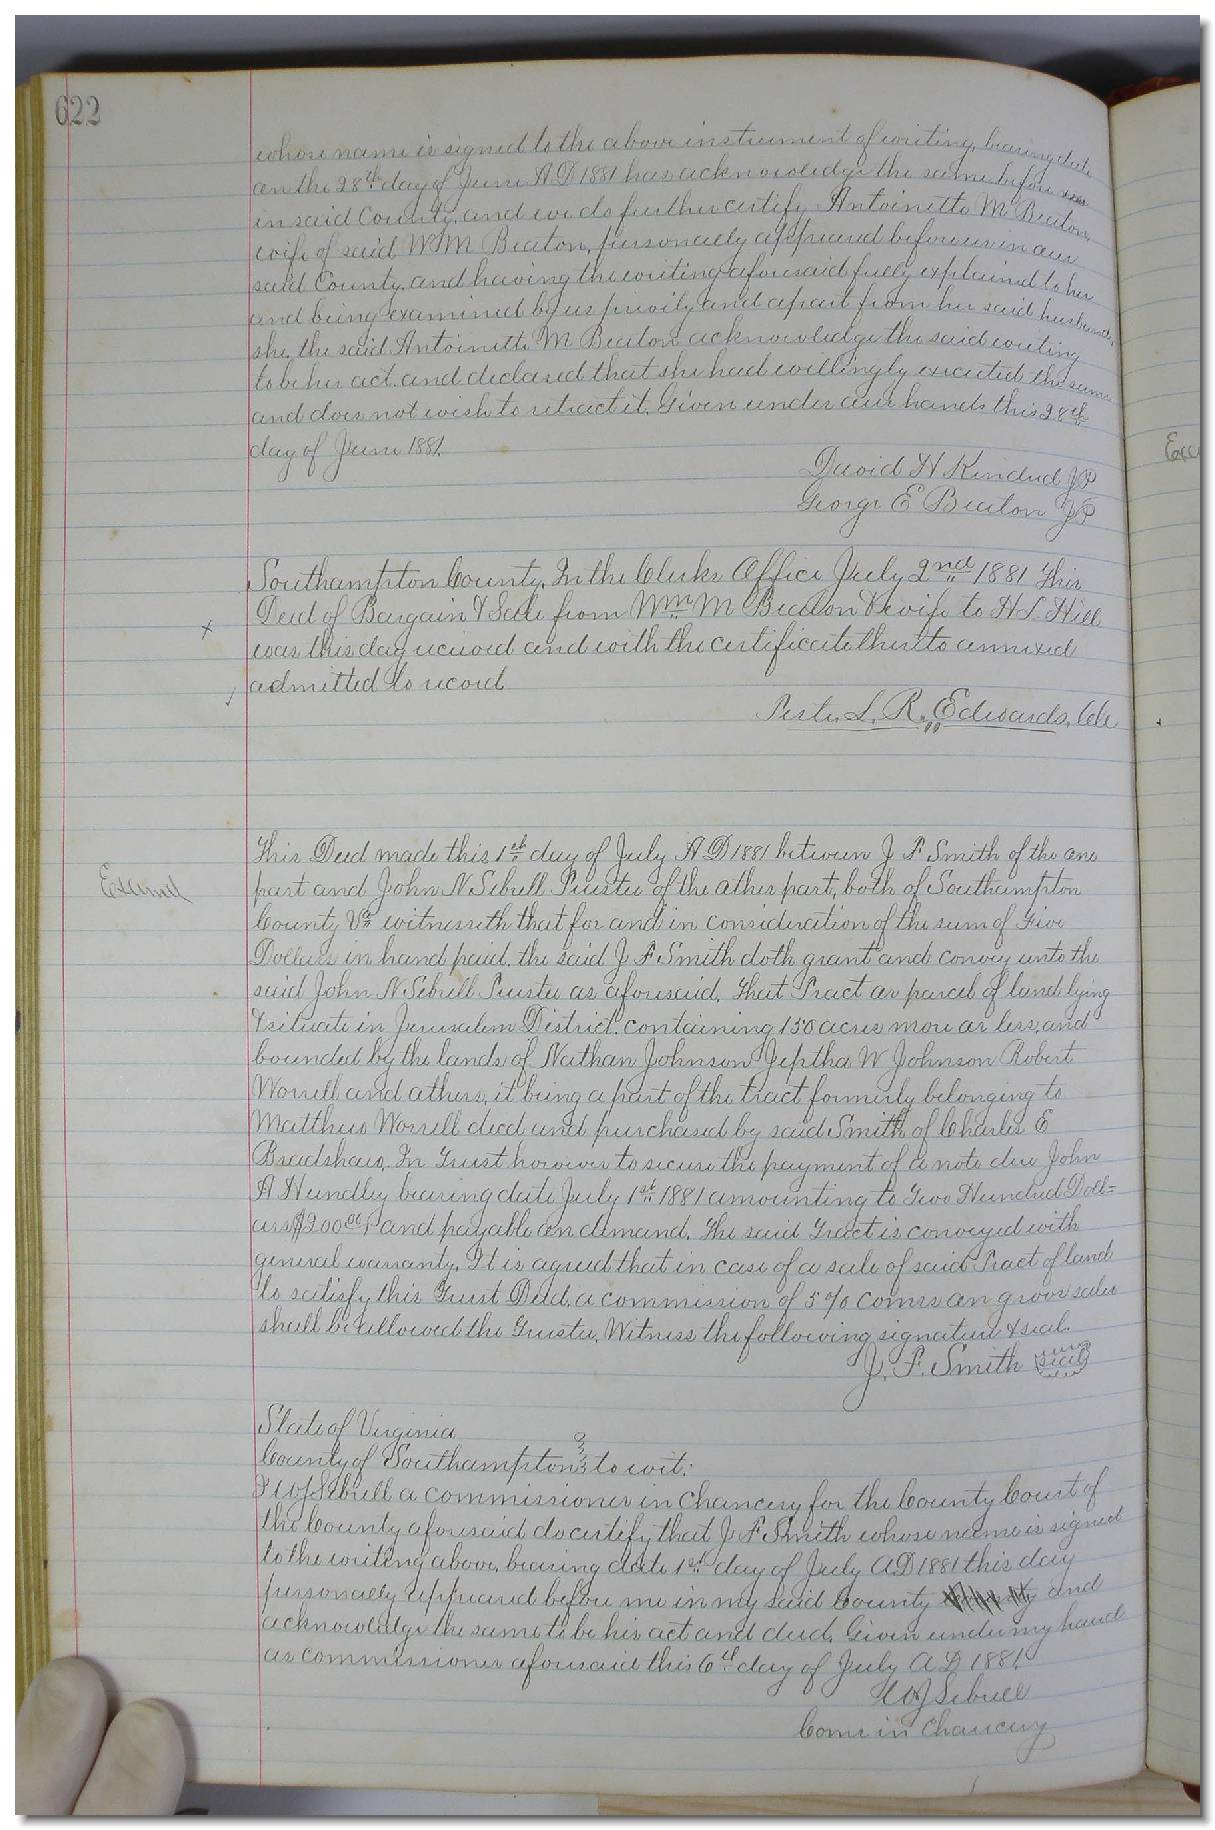 622
whose name is signed to the above instrument of writing, bearing date
on the 28th day of June A D 1881 has acknowledge the same before
in said County, and we do further certify Antoinette M Beaton,
wife of said W M Beaton, personally appeared before us in our
said County, and having the writing aforesaid fully explained to her
and being examined by us privily and apart from her said husband,
she, the said Antoinette M Beaton acknowledge the said writing
to be her act, and declared that she had willingly executed the same
and does not wish to retract it, Given under our hands this 28th
day of June 1881.
David H Kindred JP
George E Beaton JP
Southampton County, In the Clerks Office July 2nd 1881 This
Deed of Bargain & Sale from Wm M Beaton & wife to H L Hill
x
was this day received and with the certificate thereto annexed
admitted to record
Teste, L. R. Edwards, Clk
This Deed made this 1st day of July A D 1881 between J F Smith of the one
Examd
part and John N Sebrell Trustee of the other part, both of Southampton
County Va witnesseth that for and in consideration of the sum of Five
Dollars in hand paid, the said J F Smith doth grant and convey unto the
said John N Sebrell Trustee as aforesaid, that Tract or parcel of land lying
& situate in Jerusalem District, containing 150 acres more or less, and
bounded by the lands of Nathan Johnson Jeptha W Johnson Robert
Worrell and others, it being a part of the tract formerly belonging to
Matthew Worrell decd and purchased by said Smith of Charles E
Bradshaw, In Trust however to secure the payment of a note due John
A Hundley bearing date July 1st 1881 amounting to Two Hundred Doll=
ars $200.00 and payable on demand. The said Tract is conveyed with
general warranty, It is agreed that in case of a sale of said Tract of land
to satisfy this Trust Deed, a commission of 5 % coms on gross sales
shall be allowed the Trustee, Witness the following signature & seal
J. F. Smith Seal
State of Virginia
County of Southampton to wit:
I W J Sebrell a commissioner in Chancery for the County Court of
the County aforesaid do certify that J F Smith whose name is signed
to the writing above, bearing date 1st day of July A D 1881 this day
personally appeared before me in my said County and
acknowledge the same to be his act and deed, Given under my hand
as commissioner aforesaid this 6th day of July A D 1881.
W J Sebrell
Comr in Chancery